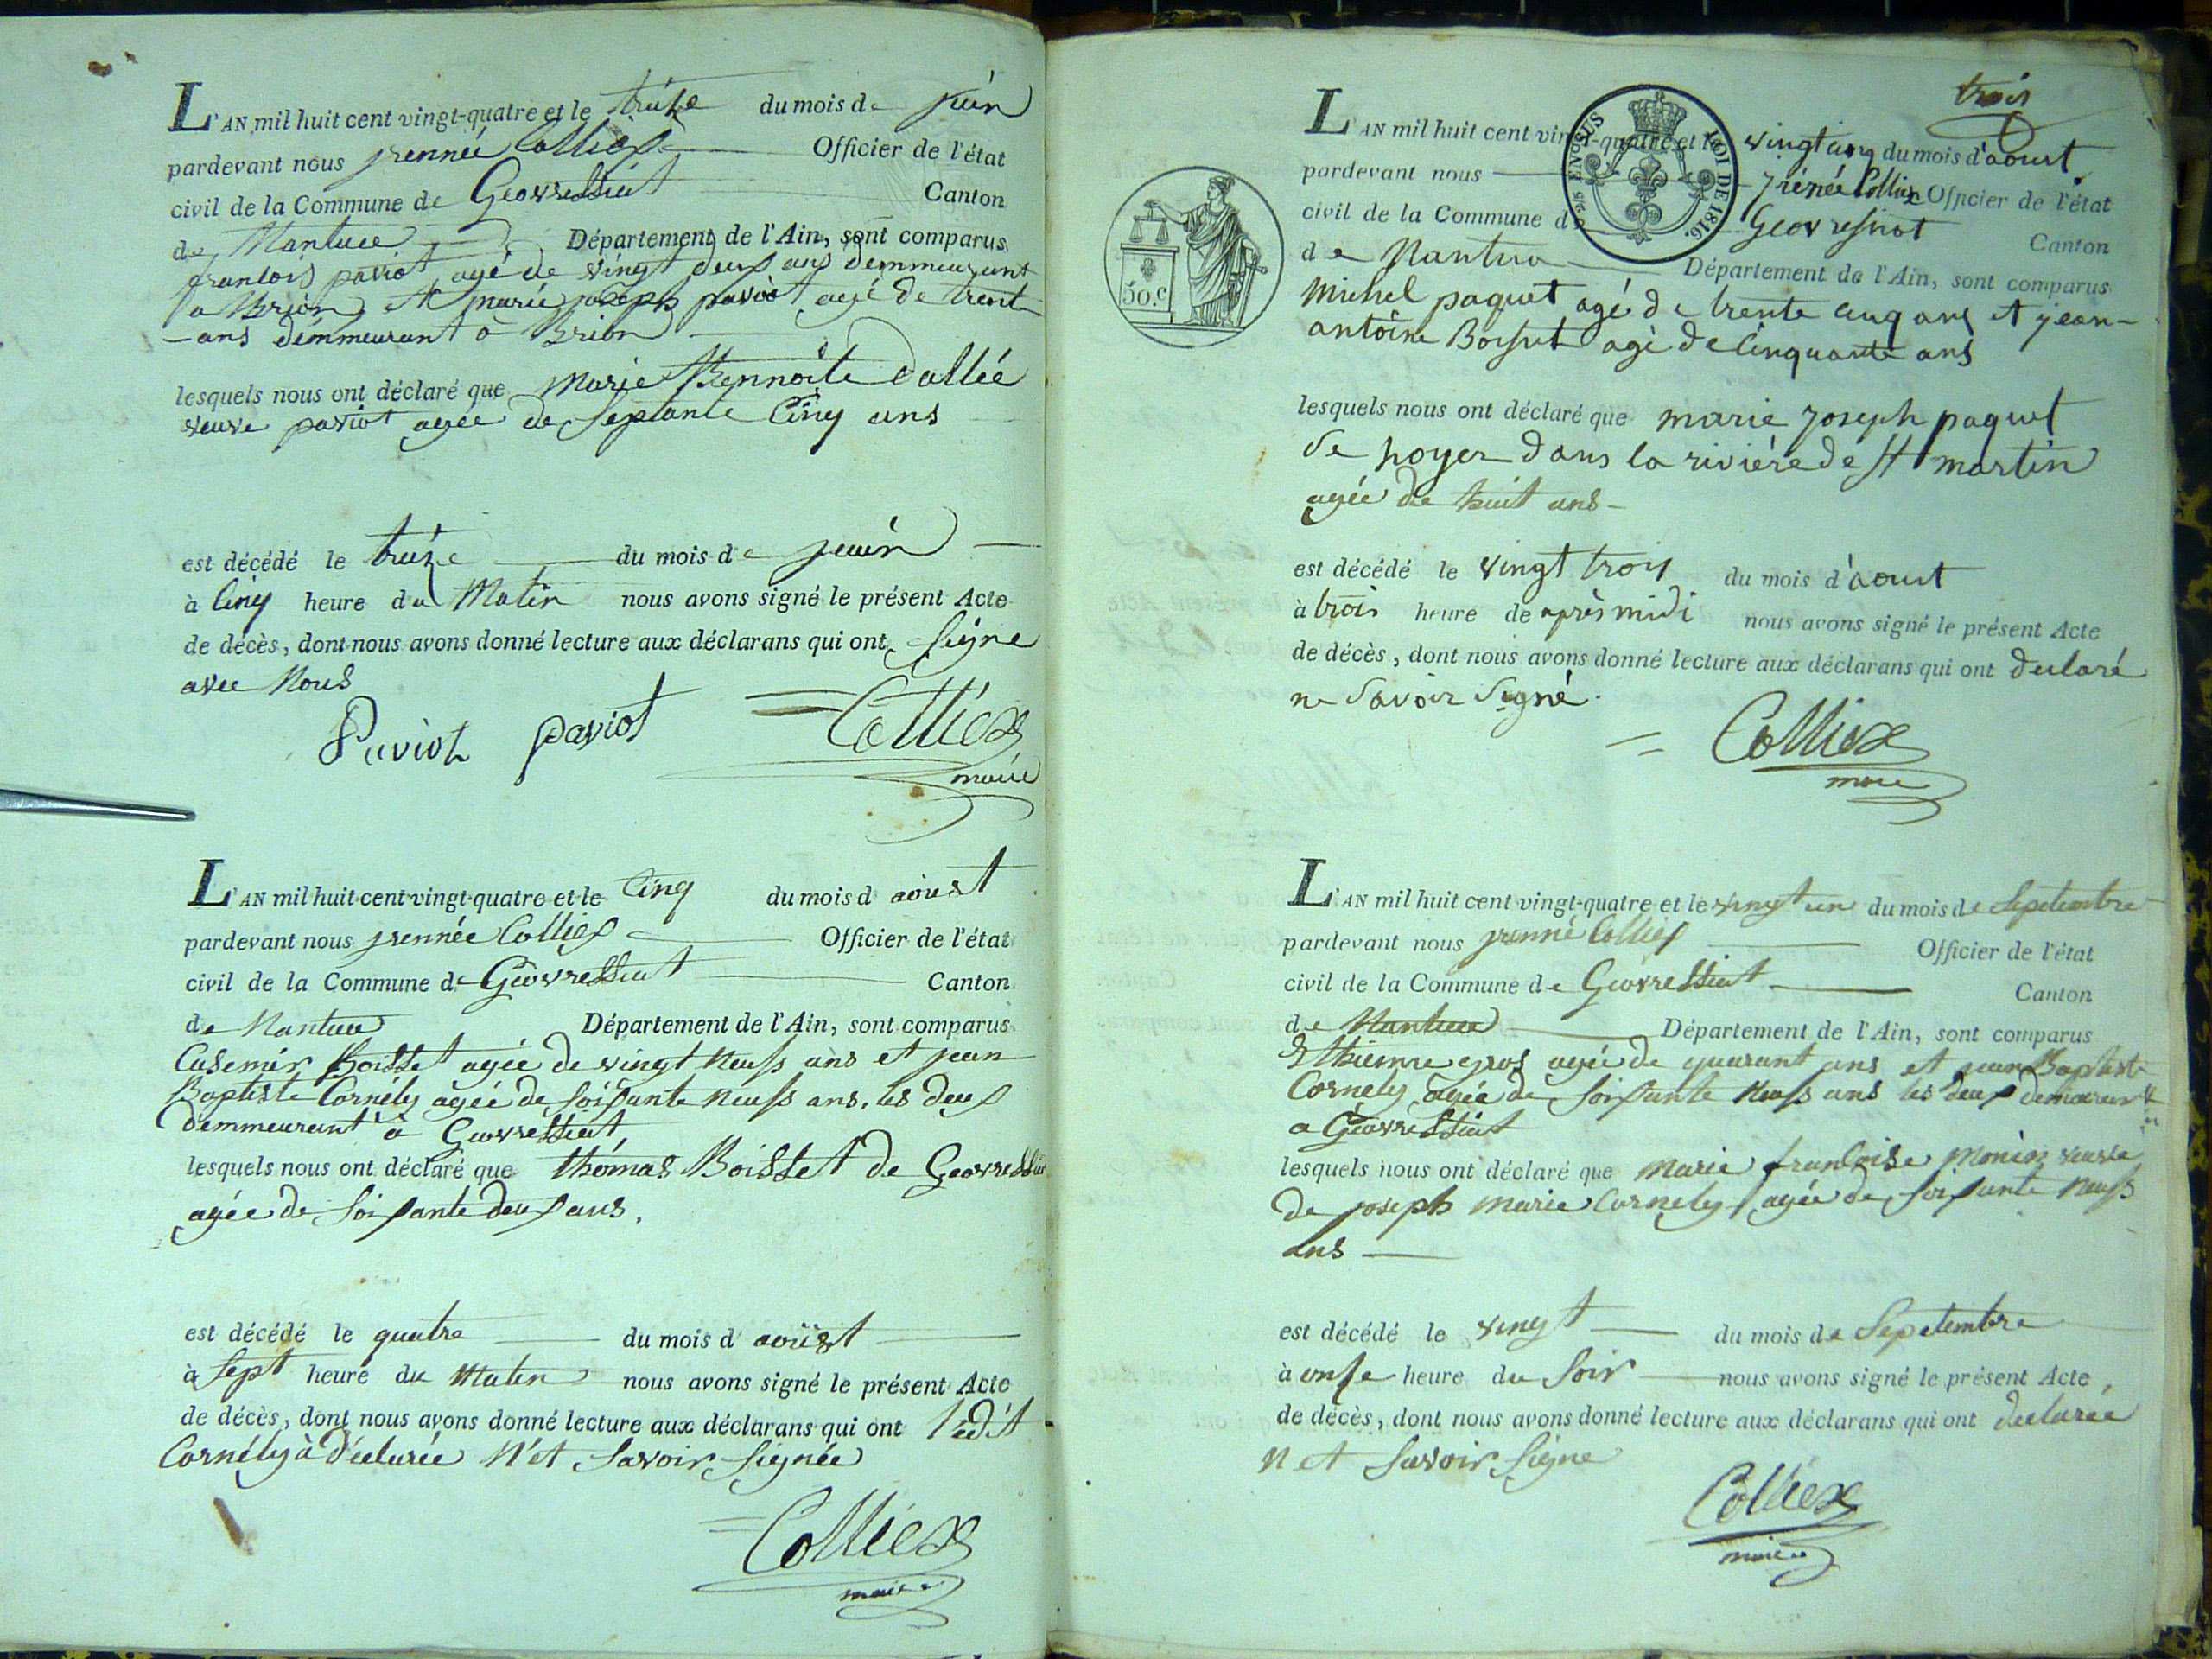 L'AN mil huit cent vingt-quatre et le treize du mois de juin
pardevant nous jrennée Colliex Officier de l'état
civil de la Commune de Geovressiat Canton
de Nantua Département de l'Ain, sont comparus
francois paviot agé de vingt deux ans demmeurant
a Brion et marie joseph paviot agé de trente
ans demmeurant a Brion
lesquels nous ont déclaré que Marie Bennoite Dallée
veuve paviot agée de septante Cinq ans
est décédé le treize du mois de juin
à Cinq heure du Matin nous avons signé le présent Acte
de décès, dont nous avons donné lecture aux déclarans qui ont signe
avec Nous
Paviot paviot Colliex
maire
L'AN mil huit cent vingt-quatre et le Cinq du mois d aoust
pardevant nous jrennée Colliex Officier de l'état
civil de la Commune de Géovressiat Canton
de Nantua Département de l'Ain, sont comparus
Casemir Boisset agée de vingt neufs ans et jean
Baptiste Cornély agée de soixante neufs ans, les deux
demmeurant à Geovressiat
lesquels nous ont déclaré que thomas Boisset de Geovressiat
agée de soixante deux ans.
est décédé le quatre du mois d' aoust
à sept heure du Maten nous avons signé le présent Acte
de décès, dont nous avons donné lecture aux déclarans qui ont ledit
Cornély à déclarée N'et savoir signée
Colliex
maire
trois
L'AN mil huit cent vingt-quatre et le vingt cinq du mois d'aoust
pardevant nous jrénée Colliex Officier de l'état
civil de la Commune de Geovresiat Canton
de Nantua Département de l'Ain, sont comparus
LOI DE 1816.
50.c
Michel paquet agé de trente cinq ans et jean-
antoine Boisset agé de cinquante ans
lesquels nous ont déclaré que marie joseph paquet
se noyer dans la riviére de st martin
agée de huit ans-
est décédé le vingt trois du mois d'aoust
à trois heure de aprés midi nous avons signé le présent Acte
de décès, dont nous avons donné lecture aux déclarans qui ont declaré
ne savoir signé.
Colliex
maire
L'AN mil huit cent vingt-quatre et le vingt un du mois de Septembre
pardevant nous jrenné Colliex Officier de l'état
civil de la Commune de Geovressiat Canton
de Nantua Département de l'Ain, sont comparus
Ethienne gros agée de quarant ans et jean Baptiste
Cornely agée de soixante neufs ans les deux demeurant
a Géovressiat
lesquels nous ont déclaré que Marie francoise Monin veuve
de joseph marie Cornely agée de soixante neufs
ans
est décédé le vingt du mois de Sepetembre
à onse heure du soir nous avons signé le présent Acte
de décès, dont nous avons donné lecture aux déclarans qui ont declarée
N et savoir signe
Colliex
maire